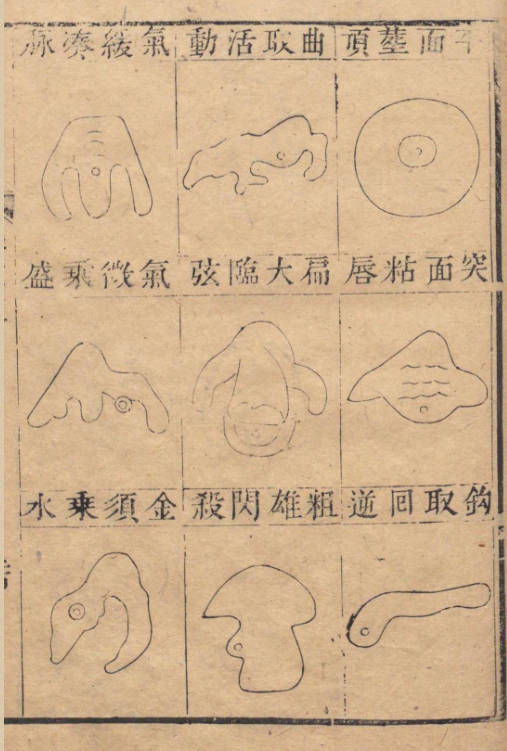 平面塟頂
曲取活動
氣緩湊脉
突面粘唇
扁大臨弦
氣微乘盛
鈎取回逆
粗雄閃殺
金須乘水